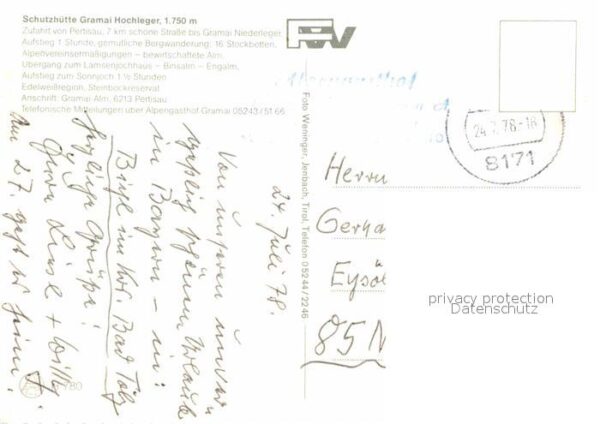 Schutzhütte Gramai Hochleger, 1.750 m
Zufahrt von Pertisau, 7 km schöne Straße bis Gramai Niederleger,
Aufstieg 1 Stunde, gemütliche Bergwanderung; 16 Stockbetten,
Alpenvereinsermäßigungen – bewirtschaftete Alm.
Übergang zum Lamsenjochhaus – Binsalm – Engalm,
Aufstieg zum Sonnjoch 1½ Stunden
Edelweißregion, Steinbockreservat
Anschrift: Gramai Alm, 6213 Pertisau
Telefonische Mitteilungen über Alpengasthof Gramai 05243/51 66
Foto Weninger, Jenbach, Tirol, Telefon 05244/2246
24. Juli 78.
Von unserem
schönen Urlaub
in Bayern – in:
Bichl im Krs. Bad Tölz
herzliche Grüße!
Eure Liesl + Willy
Am 27. geht's heim!
24.7.78-18
8171
Herrn
Gerha
Eysöl
85 N
privacy protection
Datenschutz